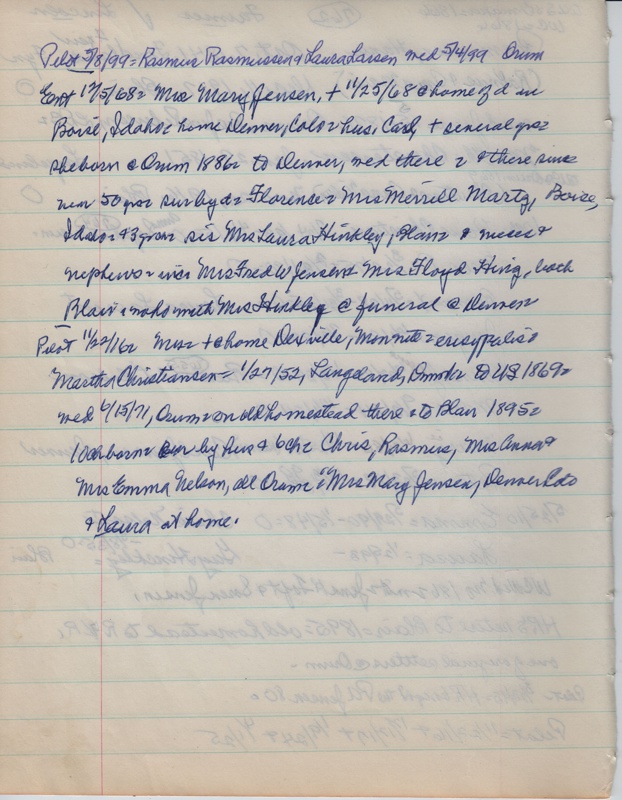 Pilot 5/8/99 = Rasmus Rasmussen & Laura Larsen wed 5/4/99 Orum
Ent 12/5/68 = Mrs Mary Jensen, + 11/25/68 @ home of d in
Boise, Idaho = home Denver, Colo = hus, Carl, + several yrs =
she born @ Orum 1886 = to Denver, wed there = & there since
near 50 yrs = sur by d = Florence = Mrs Merrill Martz, Boise,
Idaho = & 3 gr = sis Mrs Laura Hinkley, Blair & nieces &
nephews = Mrs Fred W Jensen & Mrs Floyd King, both
Blair = with Mrs Hinkley @ funeral @ Denver =
Pilot 11/22/16 = Mrs = + @ home Dexville, Mon nite = erisypalis =
Martha Christiansen = 1/27/52, Langeland, Dnmrk = to US 1869 =
wed 6/15/71, Orum = on old homestead there = to Blair 1895 =
10 ch born = sur by hus & 6 ch = Chris, Rasmus, Mrs Anna &
Mrs Emma Nelson, all Orum = Mrs Mary Jensen, Denver Colo
& Laura at home.